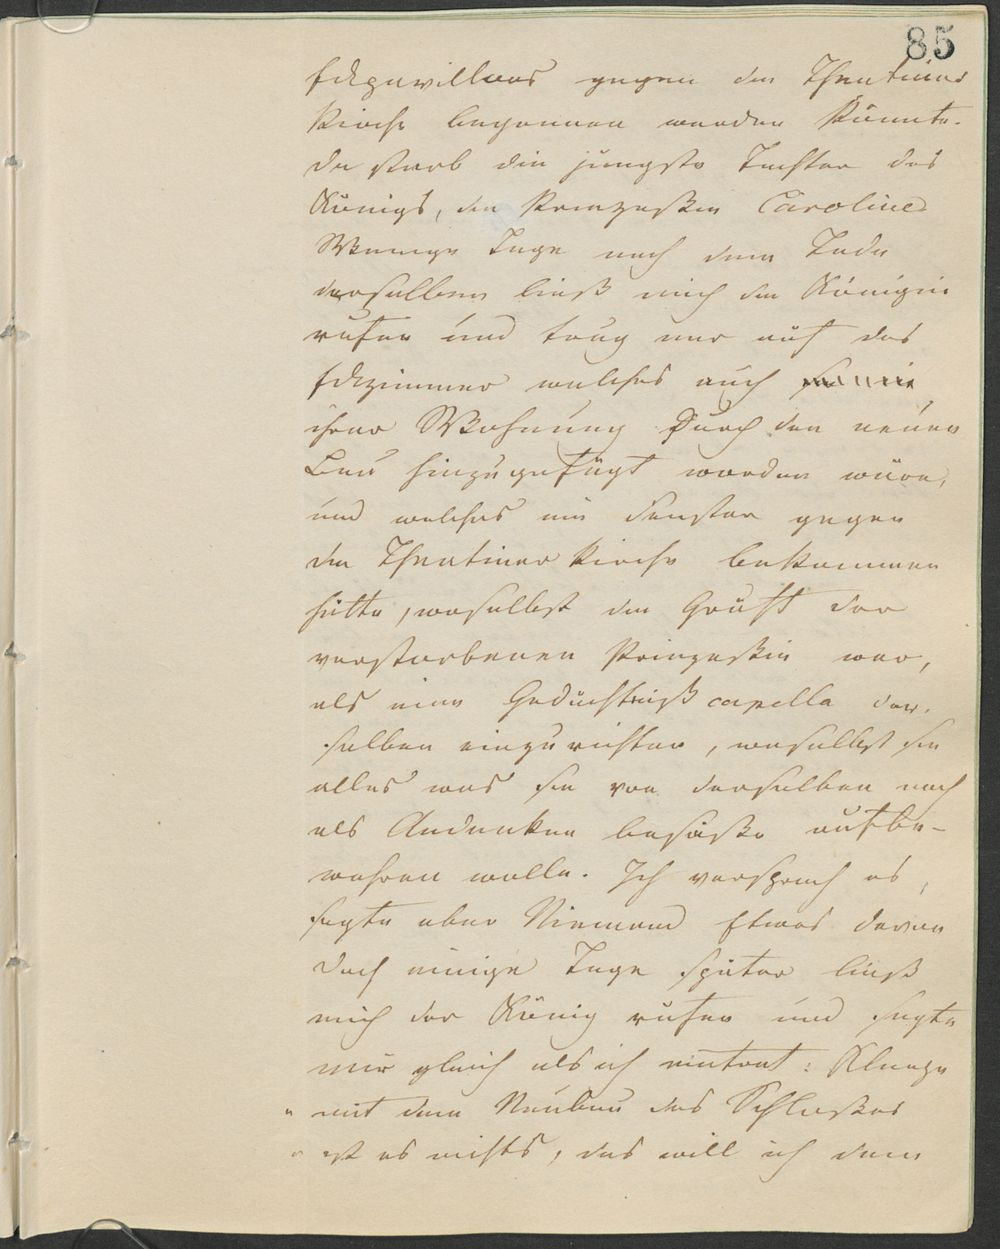 85
Eckpavillons gegen die Theatiner
Kirche begonnen werden könnte.
Da starb die jüngste Tochter des
Königs, die Prinzeßin Caroline
Wenige Tage nach dem Tode
derselben ließ mich die Königin
rufen und trug mir auf das
Eckzimmer welches auch
ihrer Wohnung durch den neuen
Bau hinzugefügt worden wäre,
und welches ein Fenster gegen
die Theatiner Kirche bekommen
hätte, woselbst die Gruft der
verstorbenen Prinzeßin war,
als eine Gedächtniß capelle der-
selben einzurichten, woselbst sie
alles was sie von derselben noch
als Andenken besäße aufbe-
wahren wolle. Ich versprach es,
sagte aber Niemand Etwas davon
doch einige Tage später ließ
mich der König rufen und sagte
mir gleich als ich eintrat: Klenze
" mit dem Neubau des Schloßes
" ist es nichts, das will ich dem